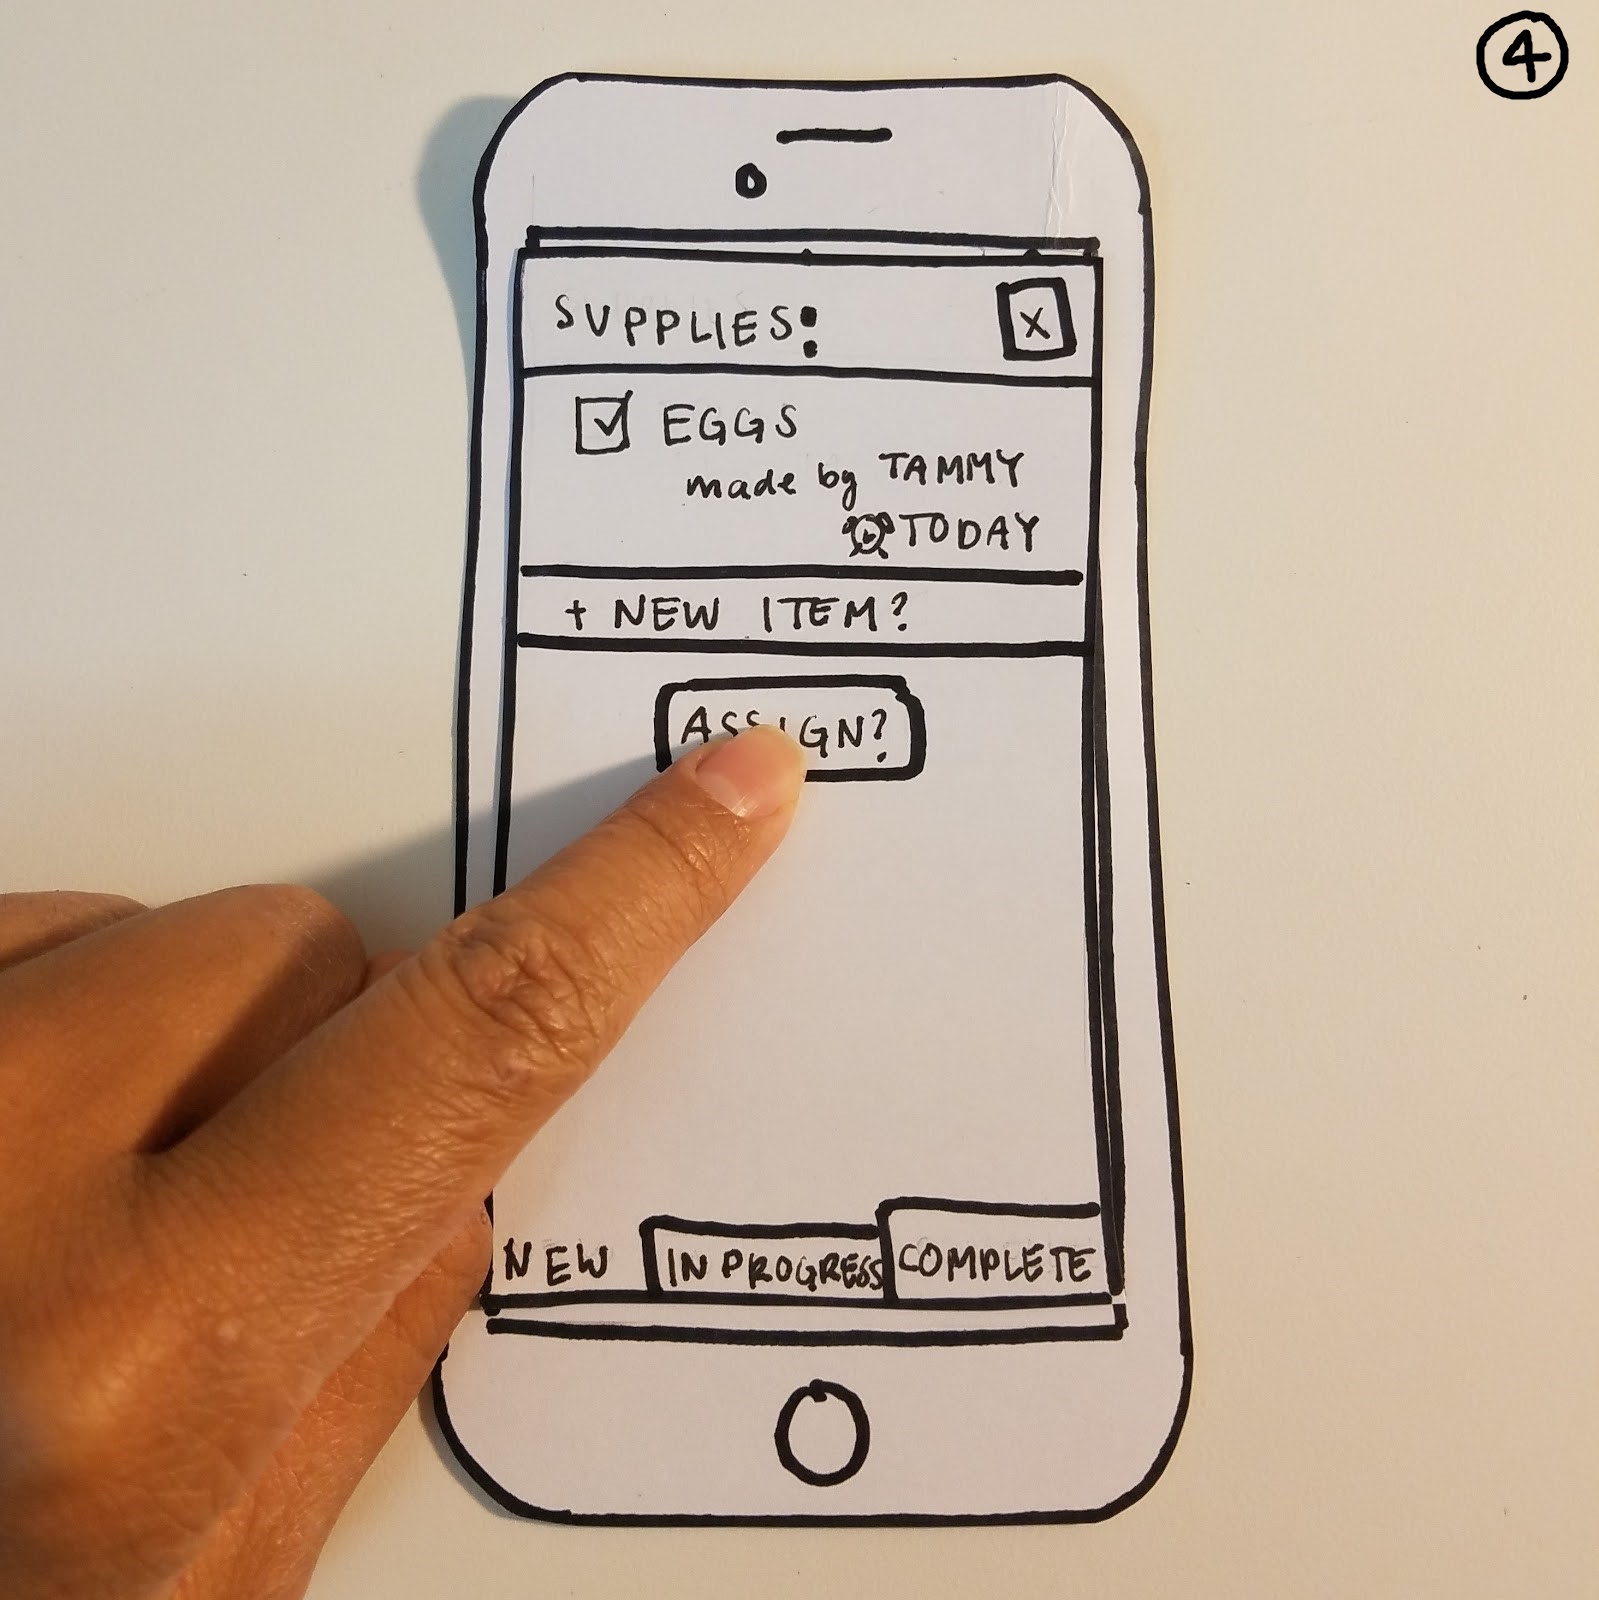 4
SUPPLIES:
X
EGGS
made by TAMMY
TODAY
+ NEW ITEM?
ASSIGN?
NEW IN PROGRESS COMPLETE